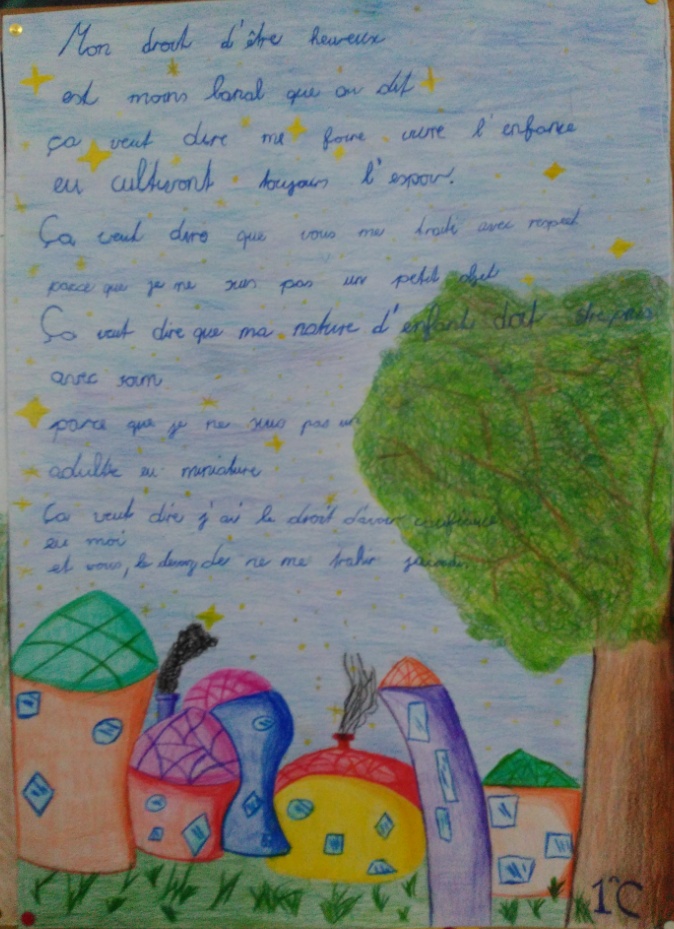 Mon droit d'être heureux
est moins banal que on dit
ça veut dire me faire vivre l'enfance
en cultivont toujours l'espoir.
Ça veut dire que vous me traite avec respect
parce que je ne suis pas un petit objet
Ça veut dire que ma nature d'enfant doit être pris
avec soin
parce que je ne suis pas un
adulte en miniature
Ça veut dire j'ai le droit d'avoir confiance
en moi
et vous, le de ne me trahir jamais.
1^C